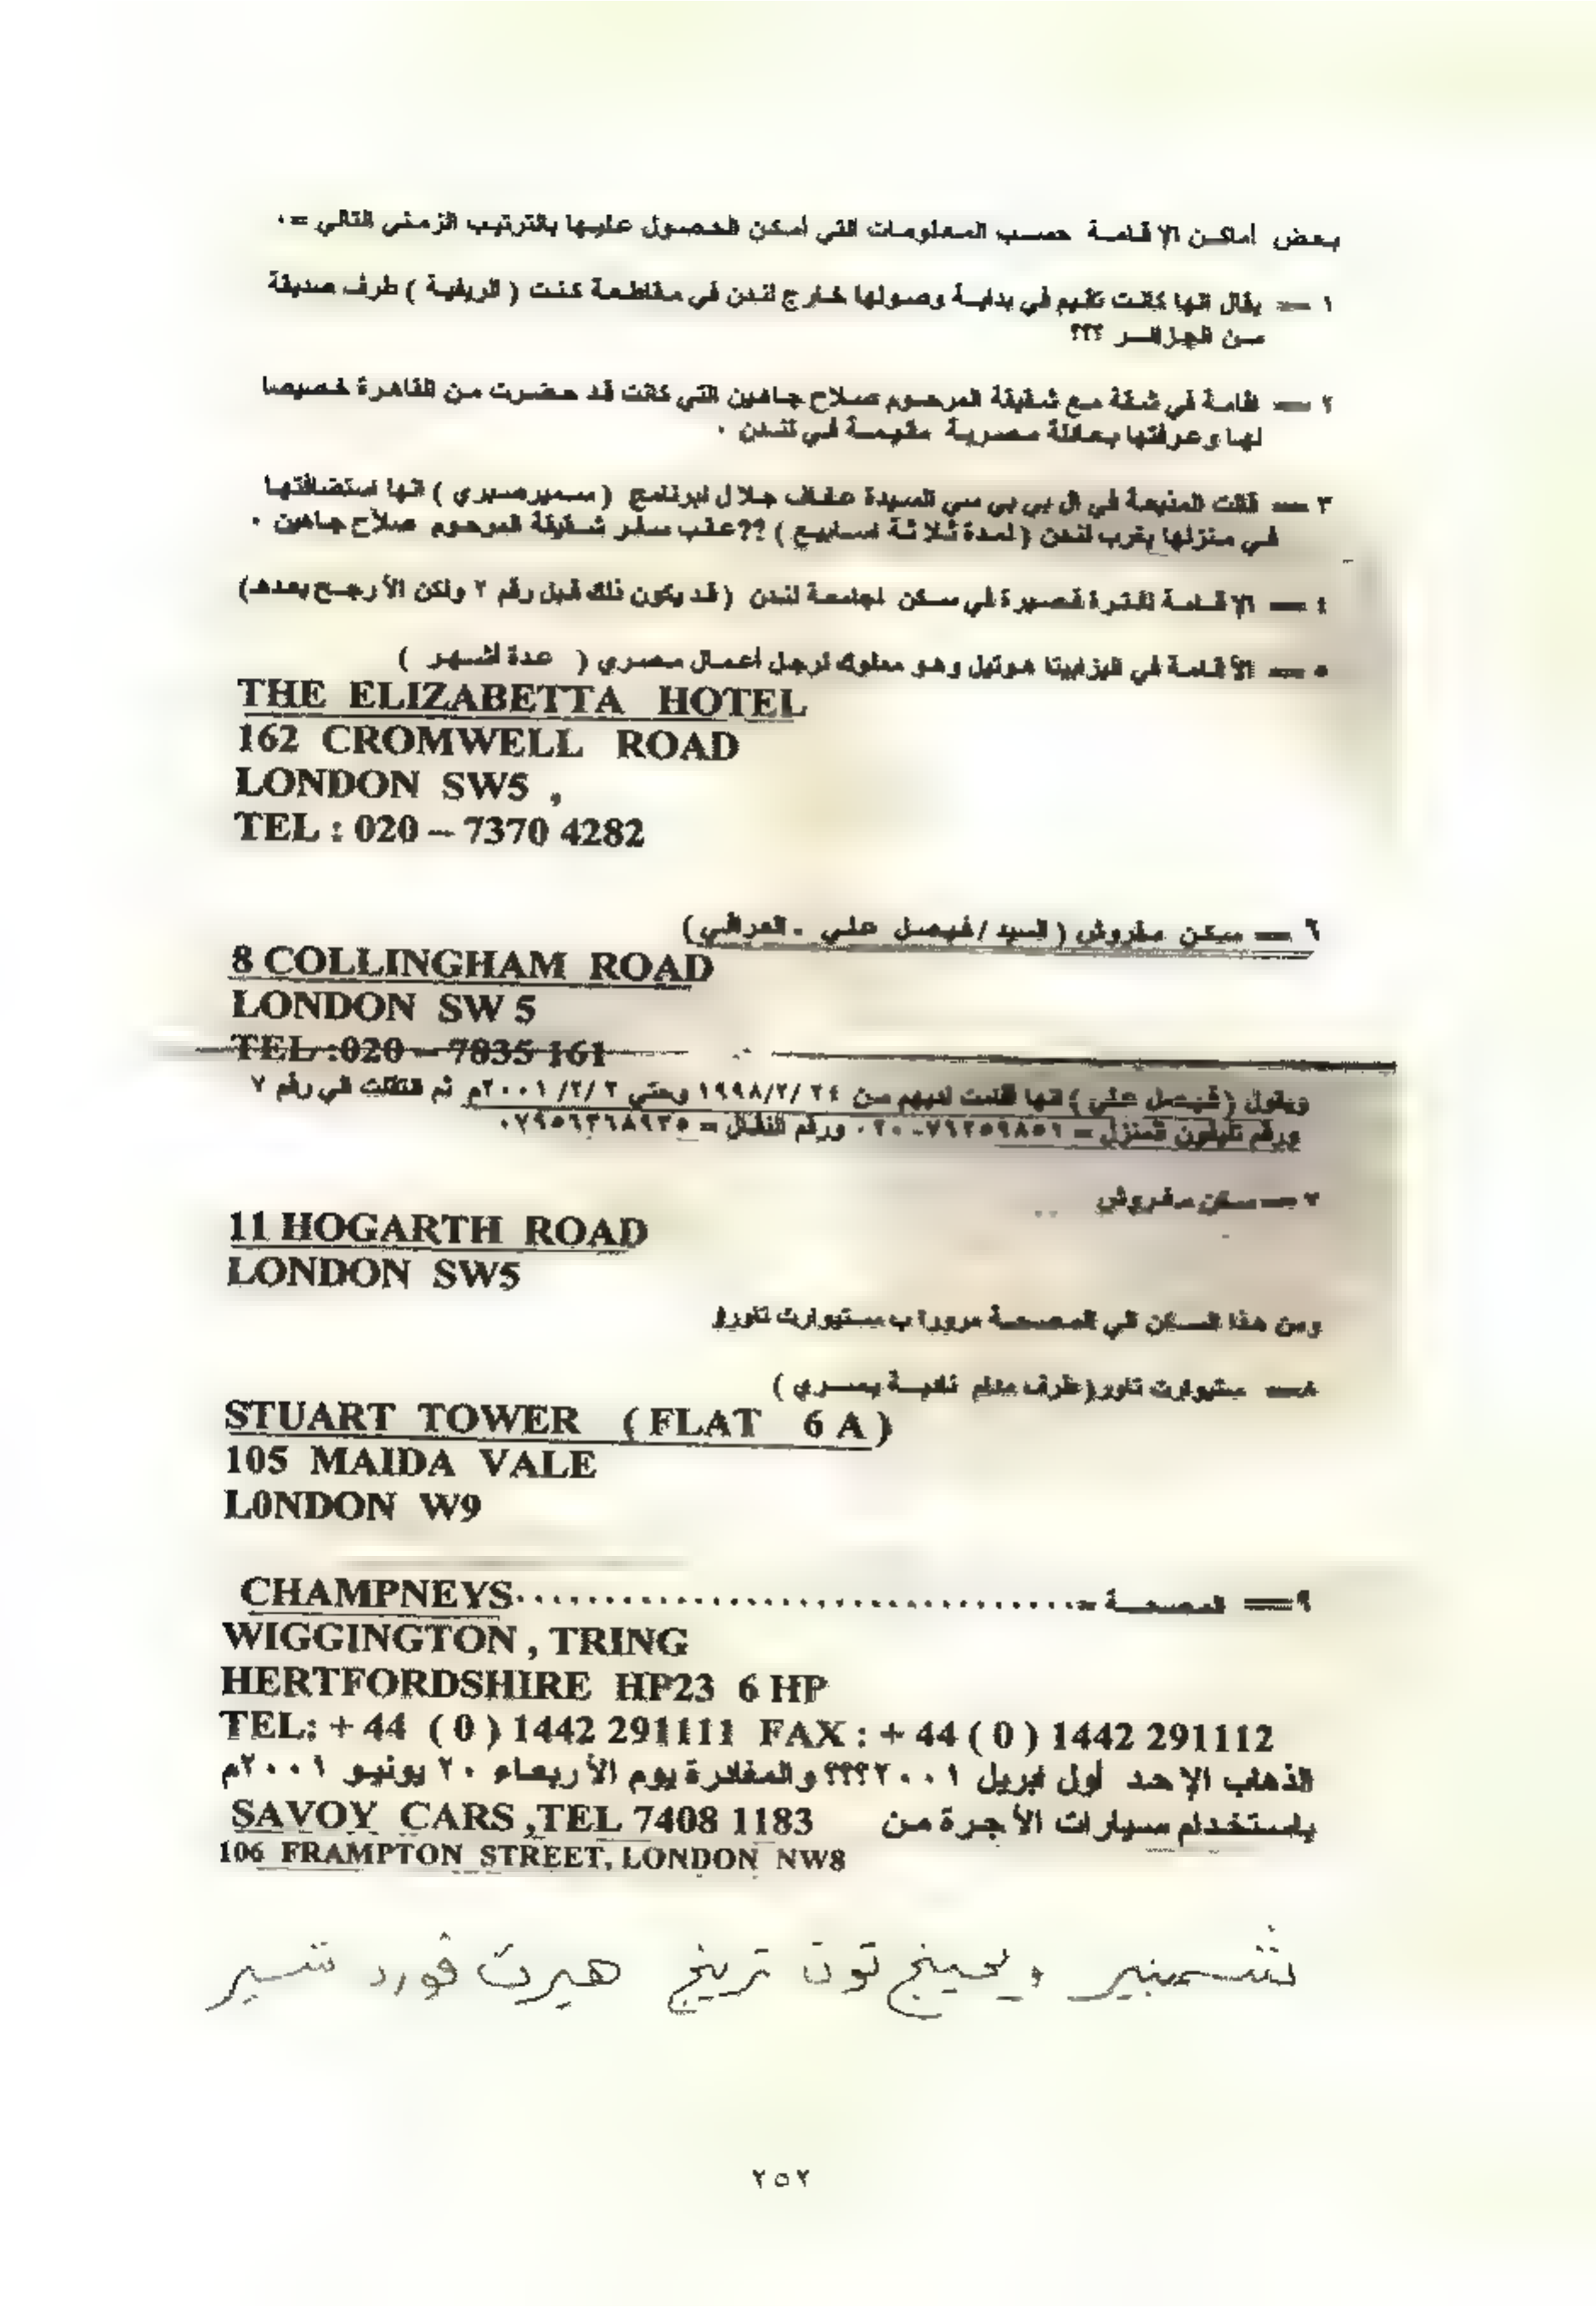 بعض أماكن الإقامة حسب المعلومات التي أمكن الحصول عليها بالترتيب الزمني التالي =٠
١ — يقال انها كانت تقيم في بداية وصولها خارج لندن في مقاطعة كنت ( الريفية ) طرف صديقة
من الجزائر ؟؟؟
٢ — اقامة في شقة مع شقيقة المرحوم صلاح جاهين التي كانت قد حضرت من القاهرة خصيصا
لها وعرفتها بعائلة مصرية مقيمة في لندن ٠
٣ — قالت المذيعة في ال بي بي سي السيدة عفاف جلال لبرنامج ( سمير صبري ) انها استضافتها
في منزلها بقرب لندن ( لمدة ثلاثة اسابيع ) ??عقب سفر شقيقة المرحوم صلاح جاهين ٠
٤ — الإقامة لفترة قصيرة في سكن لجامعة لندن ( قد يكون ذلك قبل رقم ٢ ولكن الأرجح بعدها)
٥ — الأقامة في اليزابيتا هوتيل وهو مملوك لرجل أعمال مصري ( عدة أشهر )
THE ELIZABETTA HOTEL
162 CROMWELL ROAD
LONDON SW5 ,
TEL : 020 – 7370 4282
٦ — سكن مفروش ( السيد / فيصل علي - العراقي )
8 COLLINGHAM ROAD
LONDON SW 5
TEL :020 – 7835 161
ويقول ( فيصل علي ) انها أقامت لديهم من ٢٤ /١٩٩٨/٢ وحتي ٢ /٢/ ٢٠٠١م ثم انتقلت الي رقم ٧
ورقم تليفون المنزل = ٧٦٢٥٩٨٥٦-٠٢٠ ورقم النقال = ٠٧٩٥٦٢٦٨٩٣٥
٧ — سكن مفروش
11 HOGARTH ROAD
LONDON SW5
ومن هذا السكن الي المصحة مرورا ب ستيوارت تاور
٨ — ستيوارت تاور(طرف مدام نادية يسري )
STUART TOWER ( FLAT 6 A )
105 MAIDA VALE
L0NDON W9
٩ — المصحة =..............................CHAMPNEYS
WIGGINGTON , TRING
HERTFORDSHIRE HP23 6 HP
TEL: + 44 ( 0 ) 1442 291111 FAX : + 44 ( 0 ) 1442 291112
الذهاب الإحد أول ابريل ٢٠٠١؟؟؟ والمغادرة يوم الأربعاء ٢٠ يونيو ٢٠٠١م
باستخدام سيارات الأجرة من SAVOY CARS ,TEL 7408 1183
106 FRAMPTON STREET, LONDON NW8
تشمبنير ويجينج تون ترينج هيرت فورد شير
٢٥٢